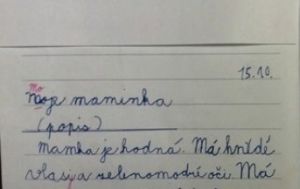 15.10.
mo
moje maminka
(popis)
Mamka je hodná. Má hnědé
vlasy a zelenomodré oči. Má